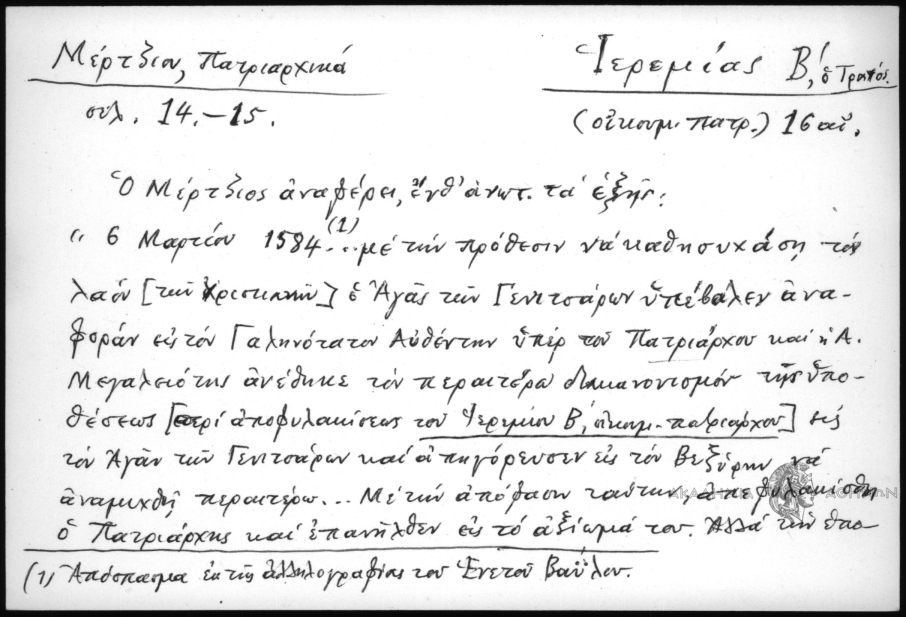 Μέρτζιου, Πατριαρχικά
Ἱερεμίας Β΄, ὁ Τρανός.
σελ. 14.-15.
(οἰκουμ. πατρ.) 16 αἰ.
Ὁ Μέρτζιος ἀναφέρει, ἔνθ' ἀνωτ. τά ἑξῆς:
"6 Μαρτίου 1584 (1)... μέ τήν πρόθεσιν νά καθησυχάσῃ τόν
λαόν [τῶν Χριστιανῶν] ὁ Ἀγᾶς τῶν Γενιτσάρων ὑπέβαλεν ἀνα-
φοράν εἰς τόν Γαληνότατον Αὐθέντην ὑπέρ τοῦ Πατριάρχου καί ἡ Α.
Μεγαλειότης ἀνέθηκε τόν περαιτέρω διακανονισμόν τῆς ὑπο-
θέσεως [περί ἀποφυλακίσεως τοῦ Ἱερεμίου Β΄, οἰκουμ. πατριάρχου] εἰς
τόν Ἀγᾶν τῶν Γενιτσάρων καί ἀπηγόρευσεν εἰς τόν Βεζύρην νά
ἀναμιχθῇ περαιτέρω... Μέ τήν ἀπόφασιν ταύτην ἀπεφυλακίσθη
ὁ Πατριάρχης καί ἐπανῆλθεν εἰς τό ἀξίωμά του. Ἀλλά τήν ὑπο-
(1) Ἀπόσπασμα ἐκ τῆς ἀλληλογραφίας τοῦ Ἑνετοῦ Βαΐλου.
ΑΚΑΔΗΜΙΑ ΑΘΗΝΩΝ